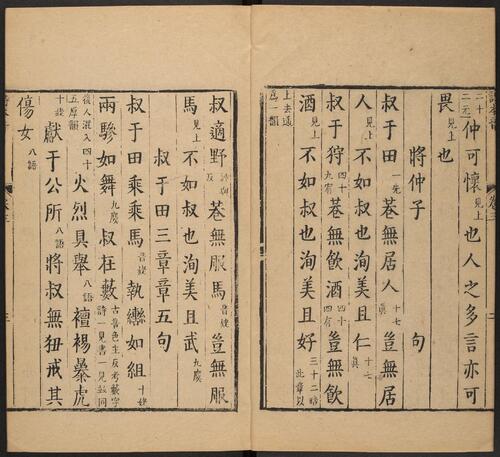 二十二元仲可懷見上也人之多言亦可
畏見上也
將仲子 句
叔于田一先巷無居人十七真豈無居
人見上不如叔也洵美且仁十七真
叔于狩四十九宥巷無飲酒四十四有豈無飲
酒見上不如叔也洵美且好三十二晧此章以
上去通爲一韻
叔適野神與反巷無服馬音姥豈無服
馬見上不如叔也洵美且武九麌
叔于田三章章五句
叔于田乘乘馬音姥執轡如組十姥
兩驂如舞九麌叔在藪古音色主反考藪字詩一見書一見並同
後人混入四十五厚韻火烈具舉八語襢裼暴虎
十姥獻于公所八語將叔無狃戒其
傷女八語